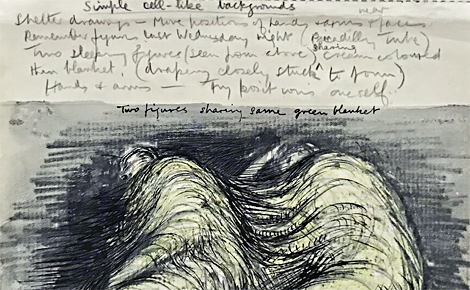 Simple cell-like backgrounds
Shelter drawings — Move positions of hands & arms near faces
Remember figures last Wednesday night (Piccadilly Tube)
Two sleeping figures (seen from above) sharing cream coloured
thin blanket. (drapery closely stuck to form)
Hands & arms — Try positions oneself.
Two figures sharing same green blanket